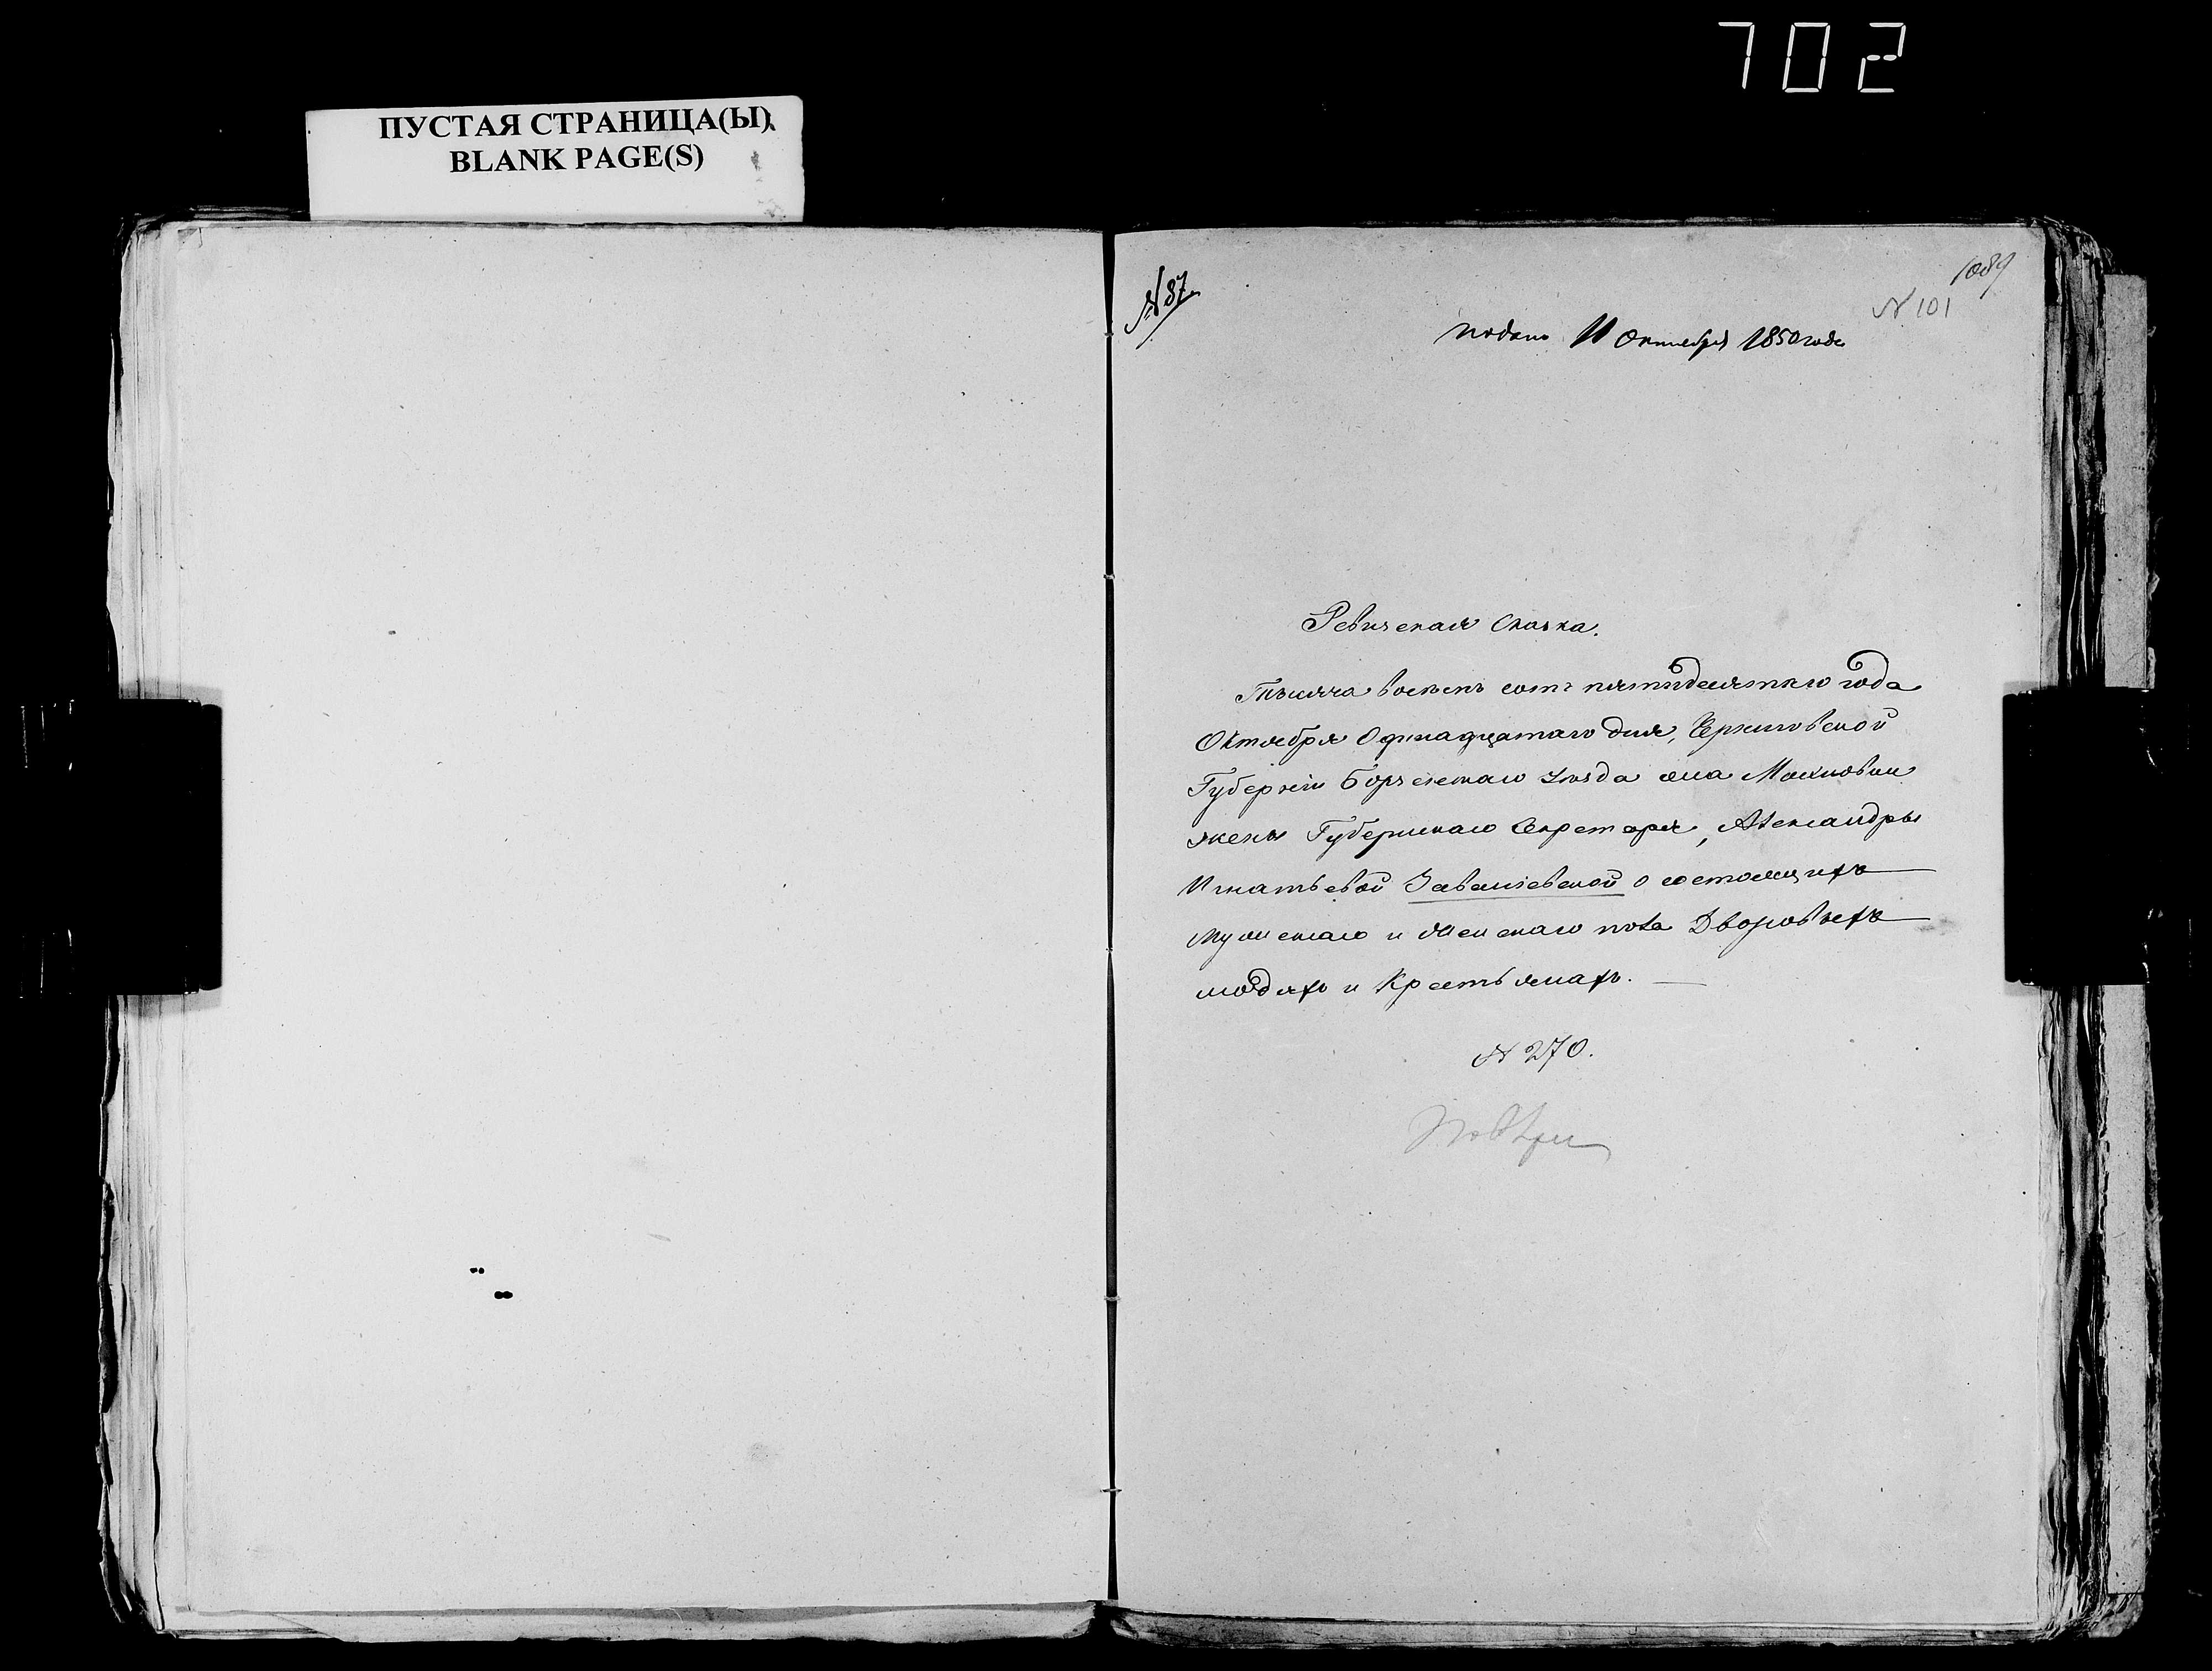 702
ПУСТАЯ СТРАНИЦА(Ы)
BLANK PAGE(S)
1089
№ 87
N 101
подана 11 Октября 1850 года
Ревизская Сказка.
Тысяча восемь сотъ пятидесятаго года
Октября Одинадцатаго дня, Черниговской
Губерніи Борзенскаго уѣзда села
жены Губернскаго Секретаря, Александры
Игнатьевой о состоящихъ
мужескаго и женскаго пола Дворовыхъ
людяхъ и Крестьянахъ. —
N 270.